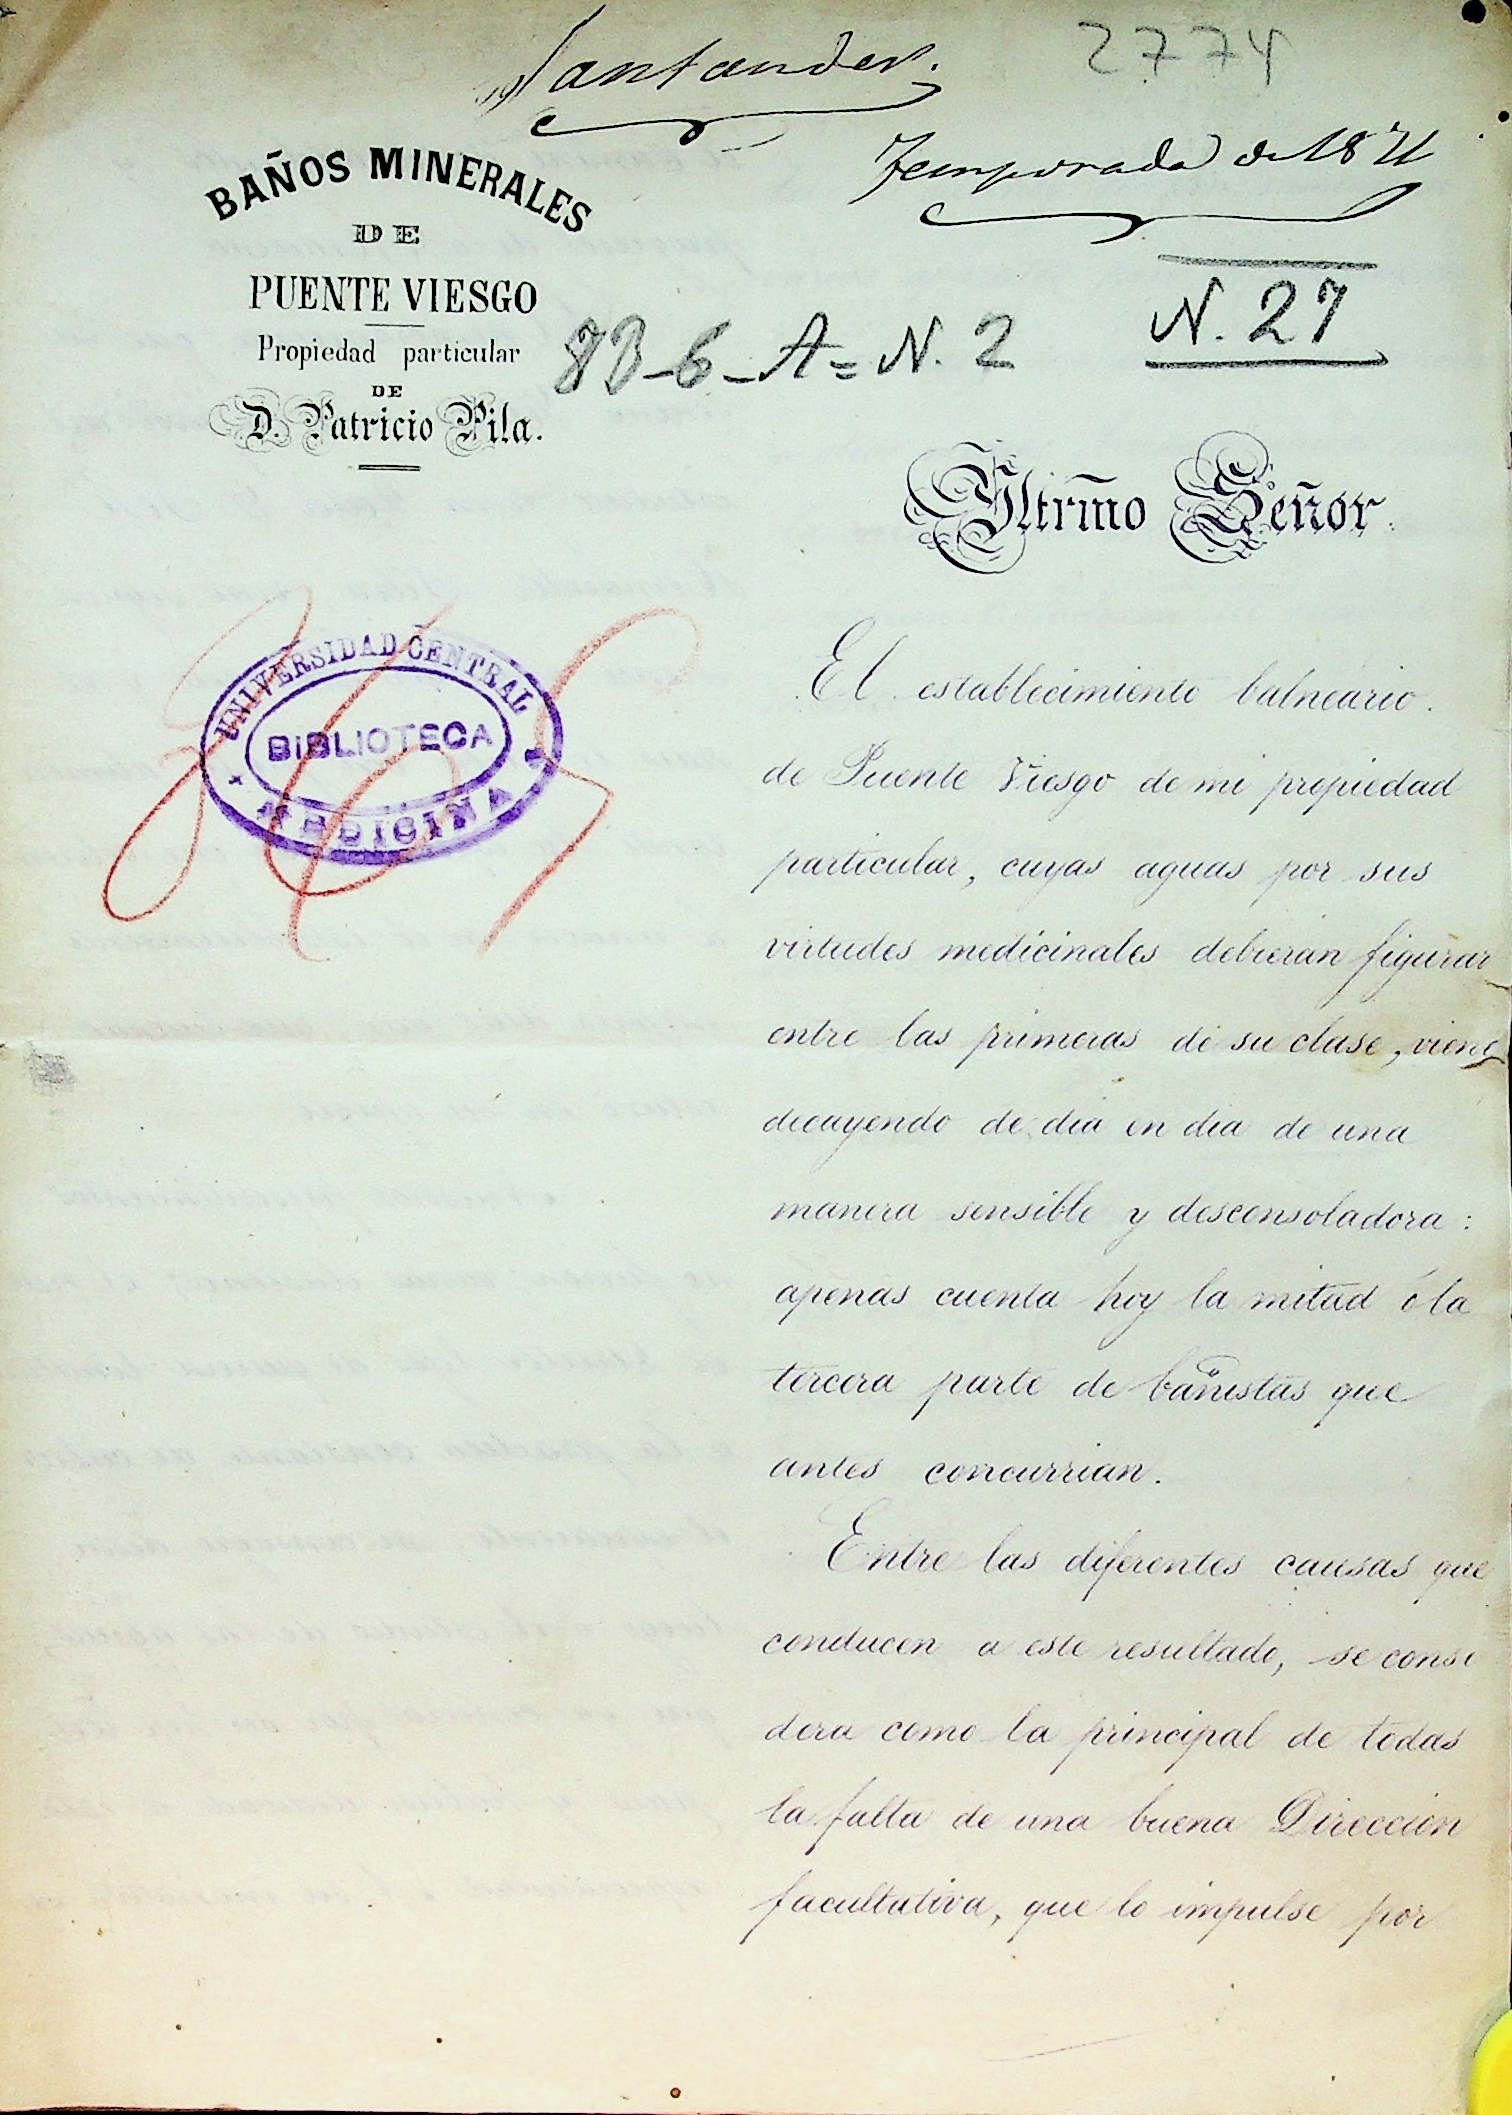 Santander.
2774
Temporada de 1871
BAÑOS MINERALES
DE
PUENTE VIESGO
Propiedad particular
DE
D. Patricio Pila.
83-6-A=N. 2
N. 27
Iltrm̃o Señor.
UNIVERSIDAD CENTRAL
BIBLIOTECA
MEDICINA
El establecimiento balneario
de Puente Viesgo de mi propiedad
particular, cuyas aguas por sus
virtudes medicinales debieran figurar
entre las primeras de su clase, viene
decayendo de dia en dia de una
manera sensible y desconsoladora:
apenas cuenta hoy la mitad ó la
tercera parte de bañistas que
antes concurrian.
Entre las diferentes causas que
conducen a este resultado, se consi
dera como la principal de todas
la falta de una buena Direccion
facultativa, que lo impulse por